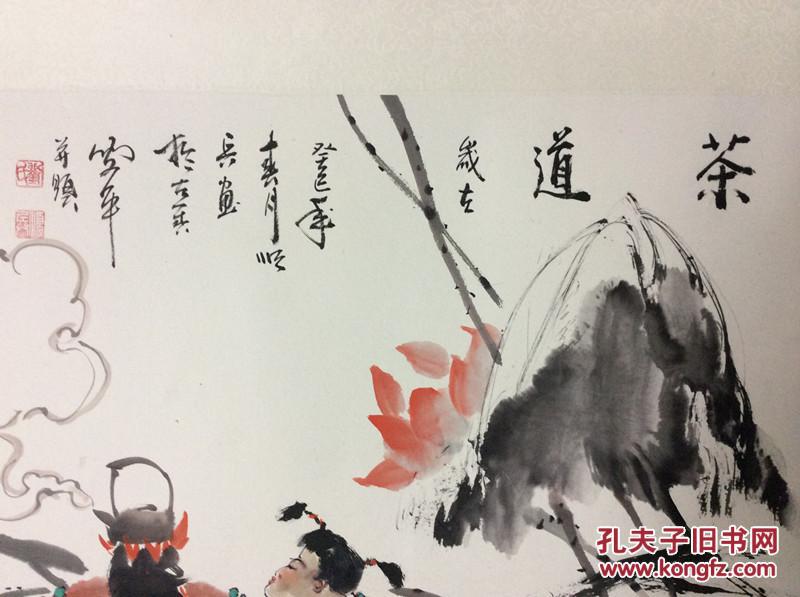 茶
道
歲在
癸巳年
春月順
兵画
於古吳
并題
孔夫子旧书网
www.kongfz.com